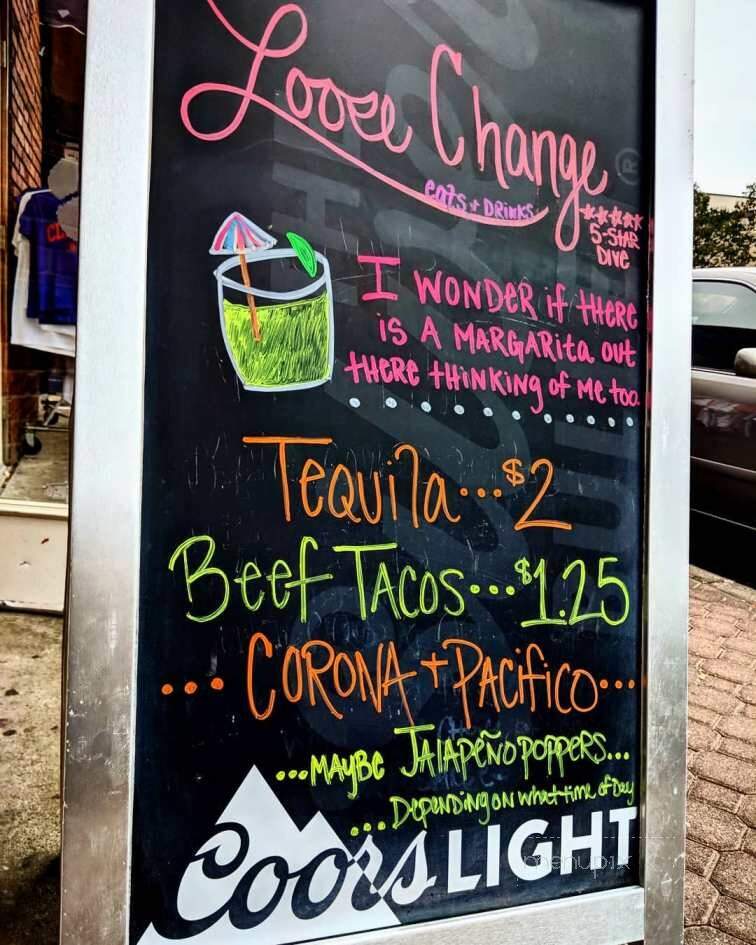 Loose Change
eats + Drinks
5-STAR
DIVE
I WONDER if tHERE
iS A MARGARita out
tHERE tHiNKiNG of Me too.
Tequila...$2
Beef TACOS...$1.25
...CORONA + PACifico...
...MAYBE JALAPEÑO POPPERS...
...DepenDing on what time of Day
Coors LIGHT
menupix